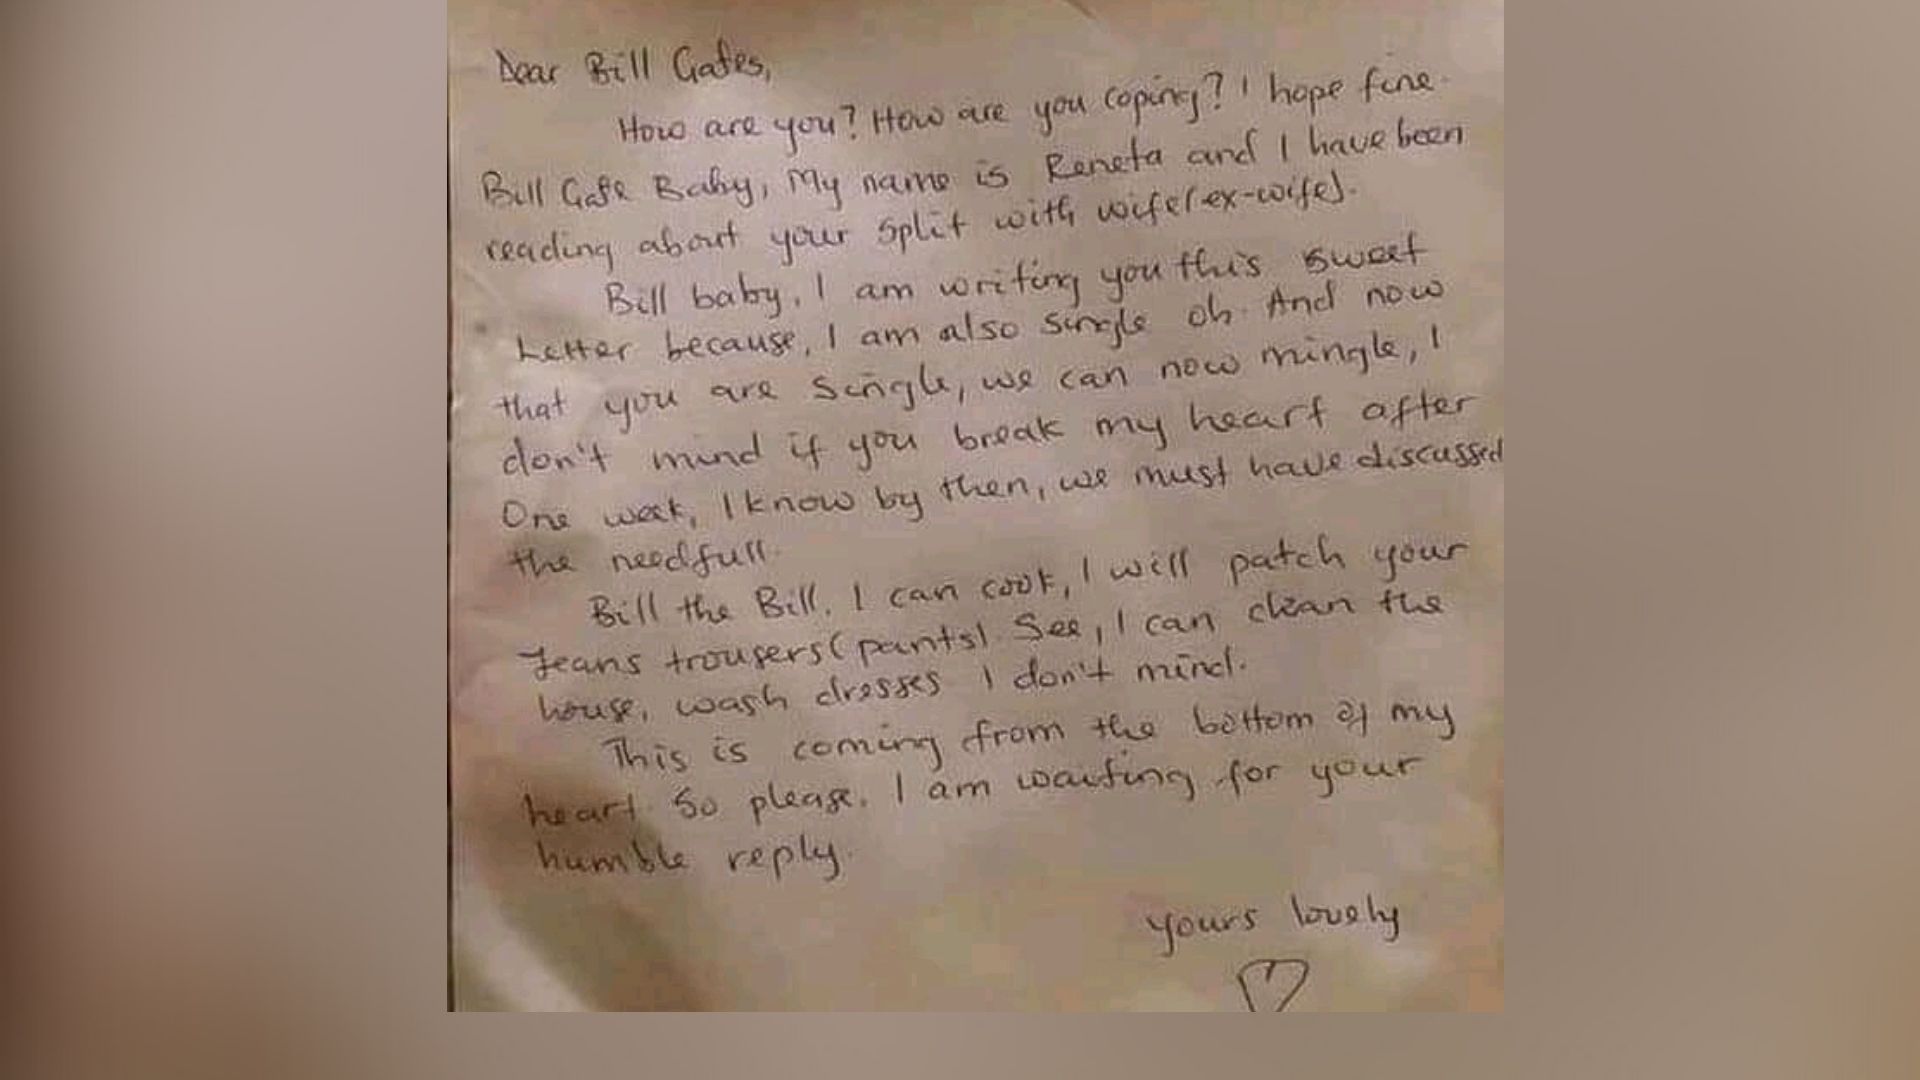 Dear Bill Gates,
How are you? How are you coping? I hope fine.
Bill Gate Baby, My name is Reneta and I have been
reading about your split with wife (ex-wife).
Bill baby, I am writing you this sweet
Letter because, I am also single oh. And now
that you are single, we can now mingle, I
don't mind if you break my heart after
One week, I know by then, we must have discussed
the needfull.
Bill the Bill, I can cook, I will patch your
Jeans trousers (pants). See, I can clean the
house, wash dresses I don't mind.
This is coming from the bottom of my
heart. So please, I am waiting for your
humble reply.
yours lovely